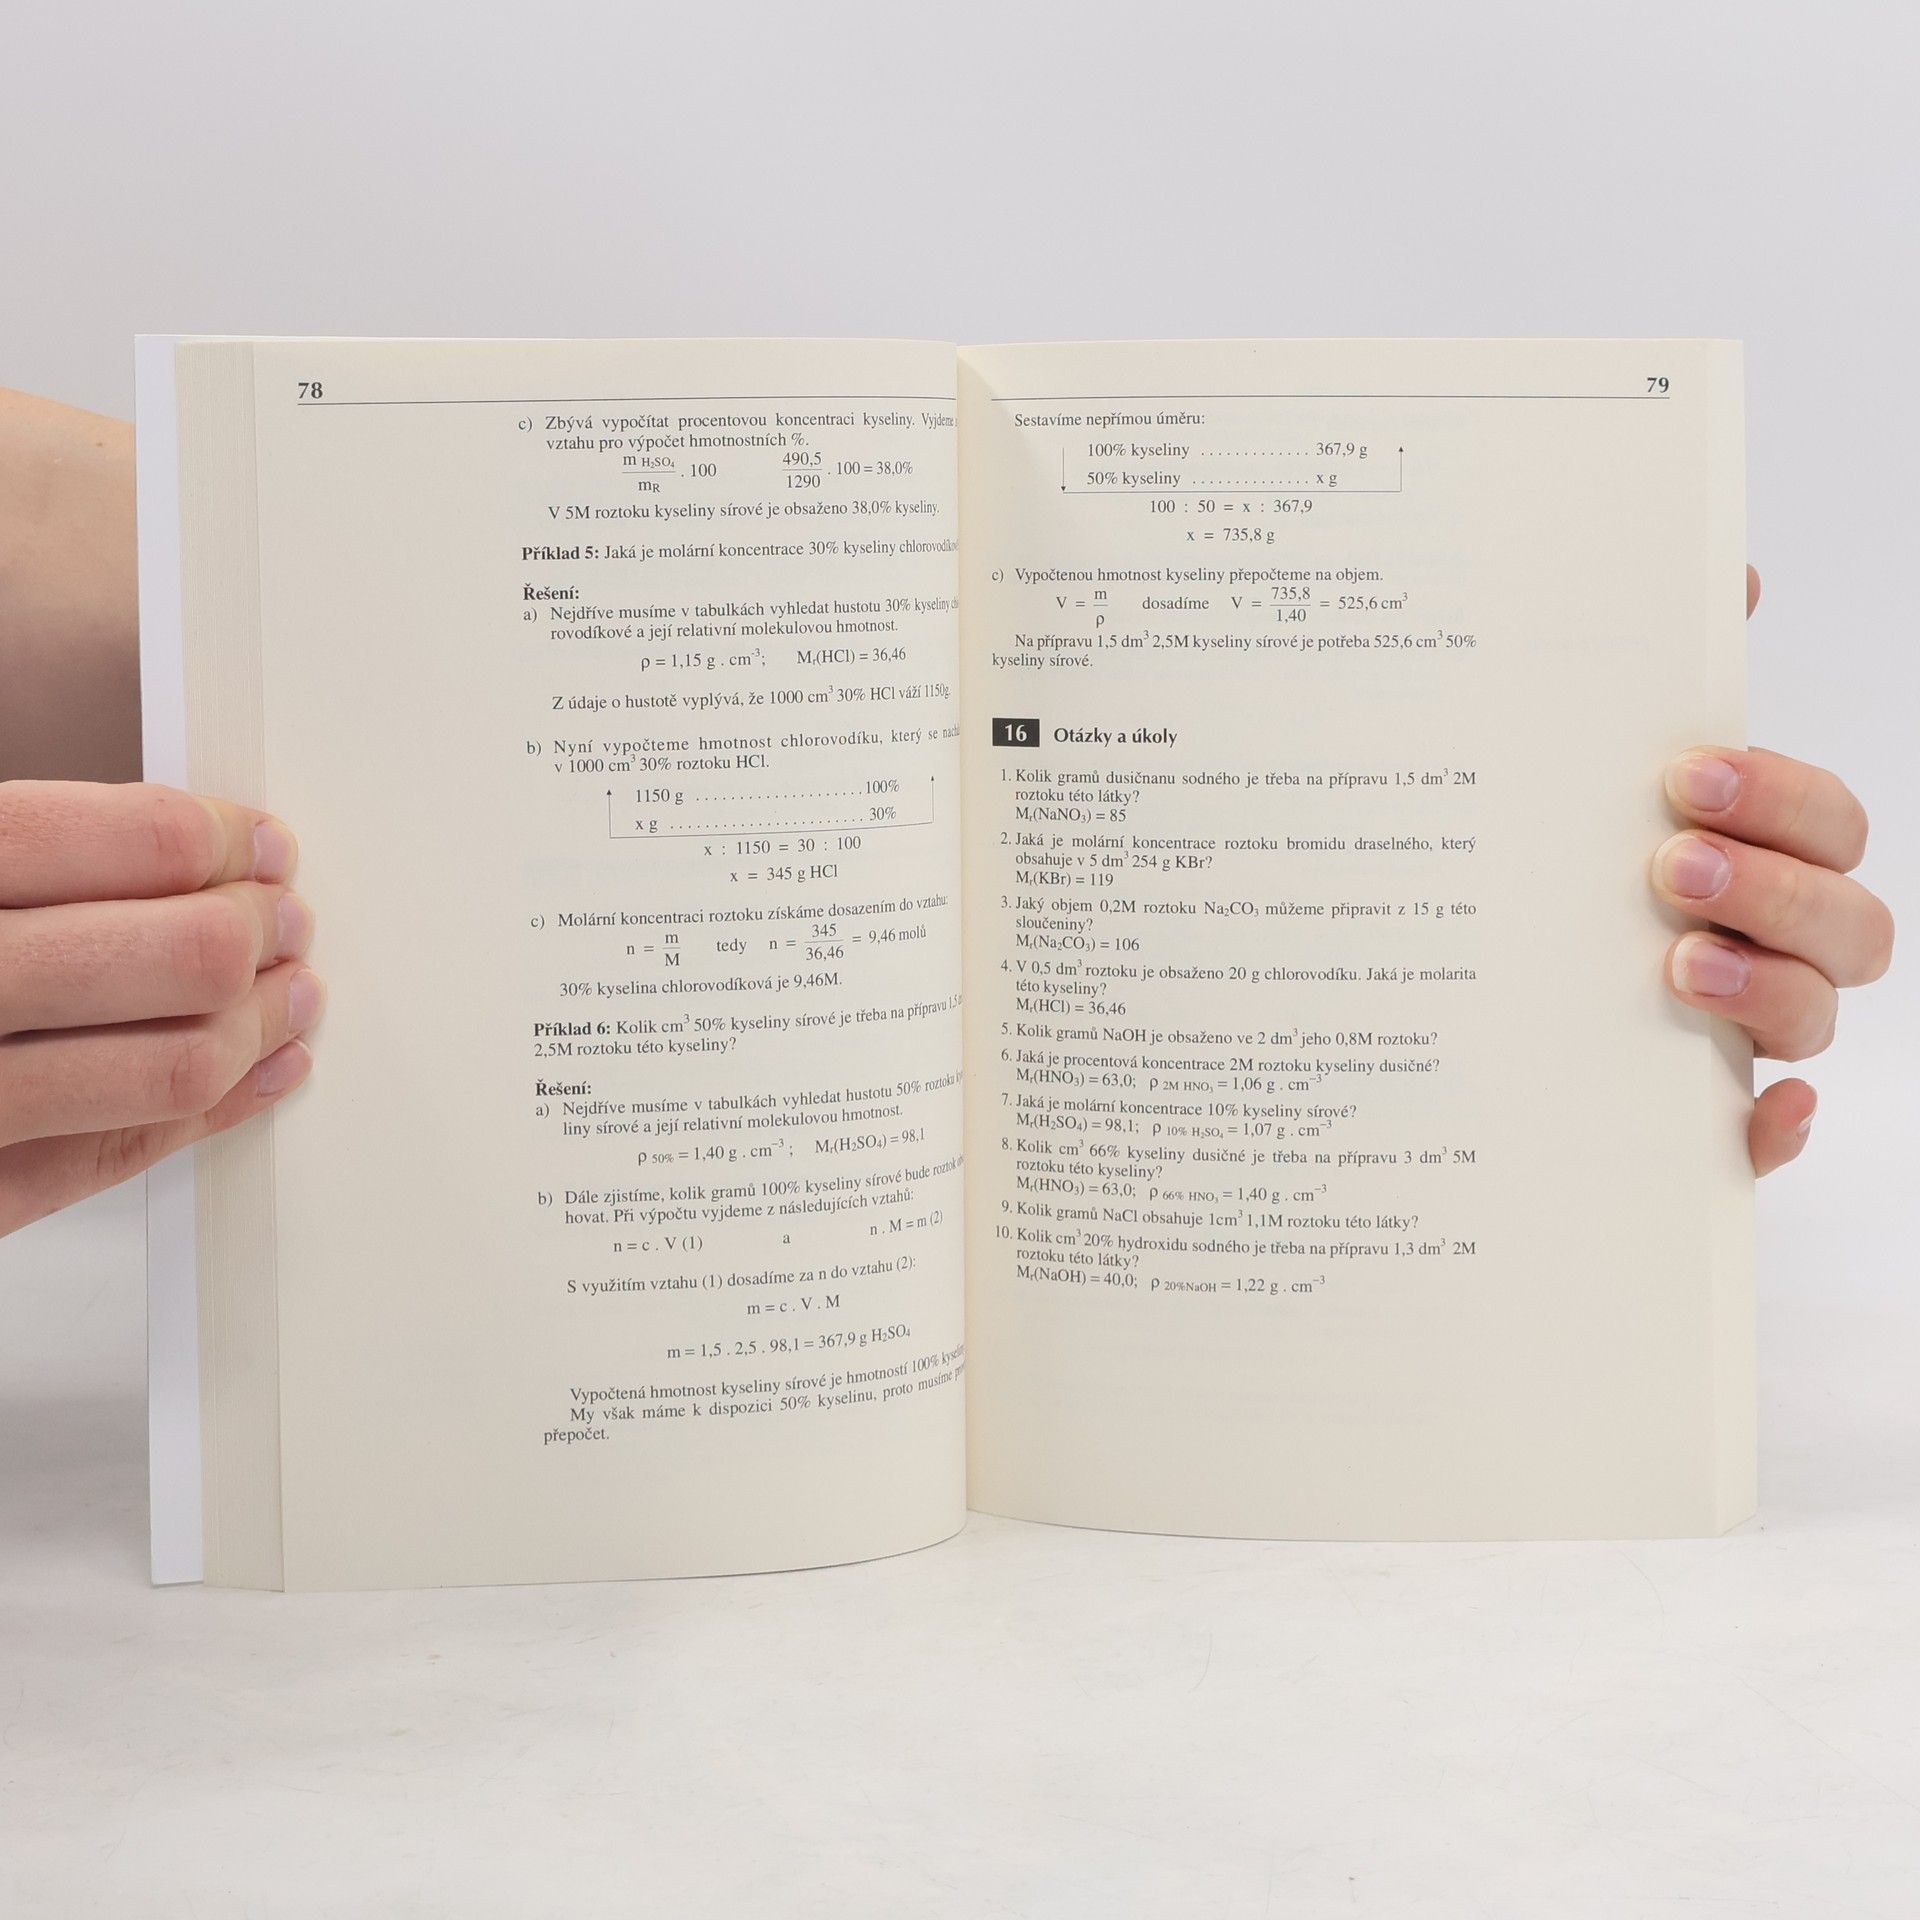 78
c) Zbývá vypočítat procentovou koncentraci kyseliny. Vyjdeme
vztahu pro výpočet hmotnostních %.
m H₂SO₄ / mR . 100    490,5 / 1290 . 100 = 38,0%
V 5M roztoku kyseliny sírové je obsaženo 38,0% kyseliny.
Příklad 5: Jaká je molární koncentrace 30% kyseliny
Řešení:
a) Nejdříve musíme v tabulkách vyhledat hustotu 30% kyseliny
rovodíkové a její relativní molekulovou hmotnost.
ρ = 1,15 g . cm⁻³;    Mᵣ(HCl) = 36,46
Z údaje o hustotě vyplývá, že 1000 cm³ 30% HCl váží 1150g.
b) Nyní vypočteme hmotnost chlorovodíku, který se
v 1000 cm³ 30% roztoku HCl.
1150 g ................... 100%
x g ...................... 30%
x : 1150 = 30 : 100
x = 345 g HCl
c) Molární koncentraci roztoku získáme dosazením do vztahu:
n = m / M    tedy    n = 345 / 36,46 = 9,46 molů
30% kyselina chlorovodíková je 9,46M.
Příklad 6: Kolik cm³ 50% kyseliny sírové je třeba na přípravu 1,5
2,5M roztoku této kyseliny?
Řešení:
a) Nejdříve musíme v tabulkách vyhledat hustotu 50% roztoku
liny sírové a její relativní molekulovou hmotnost.
ρ 50% = 1,40 g . cm⁻³ ;    Mᵣ(H₂SO₄) = 98,1
b) Dále zjistíme, kolik gramů 100% kyseliny sírové bude roztok
hovat. Při výpočtu vyjdeme z následujících vztahů:
n = c . V (1)    a    n . M = m (2)
S využitím vztahu (1) dosadíme za n do vztahu (2):
m = c . V . M
m = 1,5 . 2,5 . 98,1 = 367,9 g H₂SO₄
Vypočtená hmotnost kyseliny sírové je hmotností 100%
My však máme k dispozici 50% kyselinu, proto musíme
přepočet.
79
Sestavíme nepřímou úměru:
100% kyseliny ............. 367,9 g
50% kyseliny .............. x g
100 : 50 = x : 367,9
x = 735,8 g
c) Vypočtenou hmotnost kyseliny přepočteme na objem.
V = m / ρ    dosadíme    V = 735,8 / 1,40 = 525,6 cm³
Na přípravu 1,5 dm³ 2,5M kyseliny sírové je potřeba 525,6 cm³ 50%
kyseliny sírové.
16 Otázky a úkoly
1. Kolik gramů dusičnanu sodného je třeba na přípravu 1,5 dm³ 2M
roztoku této látky?
Mᵣ(NaNO₃) = 85
2. Jaká je molární koncentrace roztoku bromidu draselného, který
obsahuje v 5 dm³ 254 g KBr?
Mᵣ(KBr) = 119
3. Jaký objem 0,2M roztoku Na₂CO₃ můžeme připravit z 15 g této
sloučeniny?
Mᵣ(Na₂CO₃) = 106
4. V 0,5 dm³ roztoku je obsaženo 20 g chlorovodíku. Jaká je molarita
této kyseliny?
Mᵣ(HCl) = 36,46
5. Kolik gramů NaOH je obsaženo ve 2 dm³ jeho 0,8M roztoku?
6. Jaká je procentová koncentrace 2M roztoku kyseliny dusičné?
Mᵣ(HNO₃) = 63,0; ρ 2M HNO₃ = 1,06 g . cm⁻³
7. Jaká je molární koncentrace 10% kyseliny sírové?
Mᵣ(H₂SO₄) = 98,1; ρ 10% H₂SO₄ = 1,07 g . cm⁻³
8. Kolik cm³ 66% kyseliny dusičné je třeba na přípravu 3 dm³ 5M
roztoku této kyseliny?
Mᵣ(HNO₃) = 63,0; ρ 66% HNO₃ = 1,40 g . cm⁻³
9. Kolik gramů NaCl obsahuje 1cm³ 1,1M roztoku této látky?
10. Kolik cm³ 20% hydroxidu sodného je třeba na přípravu 1,3 dm³ 2M
roztoku této látky?
Mᵣ(NaOH) = 40,0; ρ 20%NaOH = 1,22 g . cm⁻³